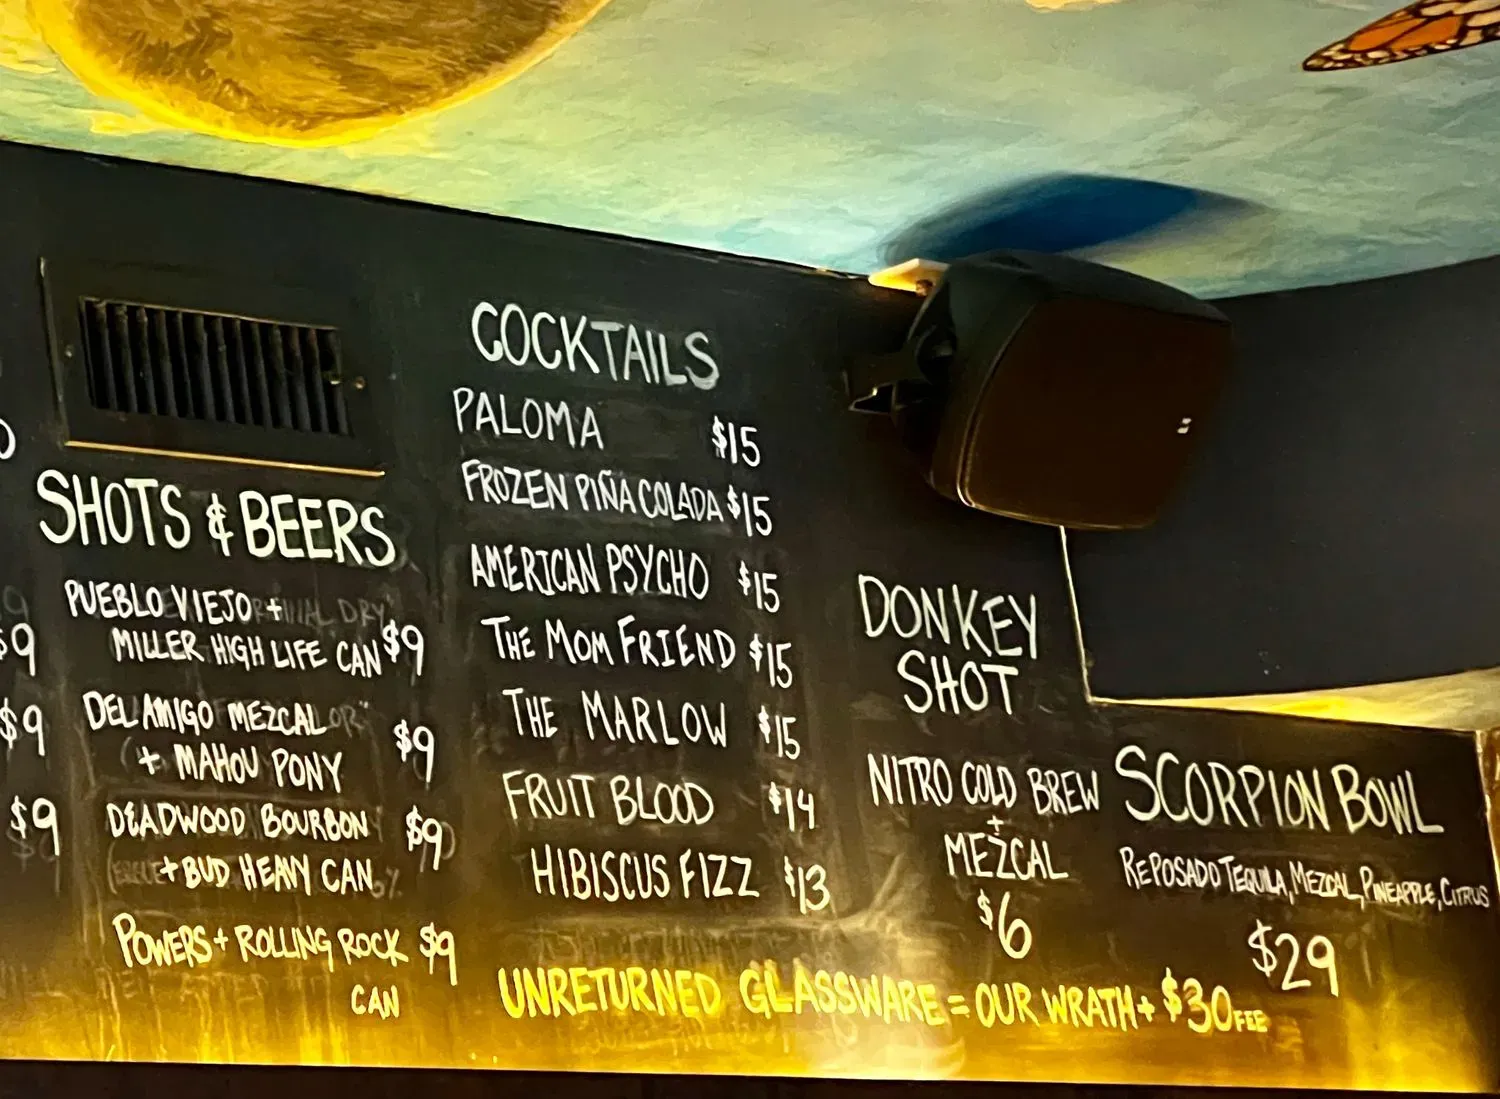 $9
$9
$9
SHOTS & BEERS
PUEBLO VIEJO +
MILLER HIGH LIFE CAN $9
DEL AMIGO MEZCAL
+ MAHOU PONY $9
DEADWOOD BOURBON
+ BUD HEAVY CAN $9
POWERS + ROLLING ROCK $9
CAN
COCKTAILS
PALOMA $15
FROZEN PIÑA COLADA $15
AMERICAN PSYCHO $15
THE MOM FRIEND $15
THE MARLOW $15
FRUIT BLOOD $14
HIBISCUS FIZZ $13
DONKEY
SHOT
NITRO COLD BREW
+
MEZCAL
$6
SCORPION BOWL
REPOSADO TEQUILA, MEZCAL, PINEAPPLE, CITRUS
$29
UNRETURNED GLASSWARE = OUR WRATH + $30 FEE